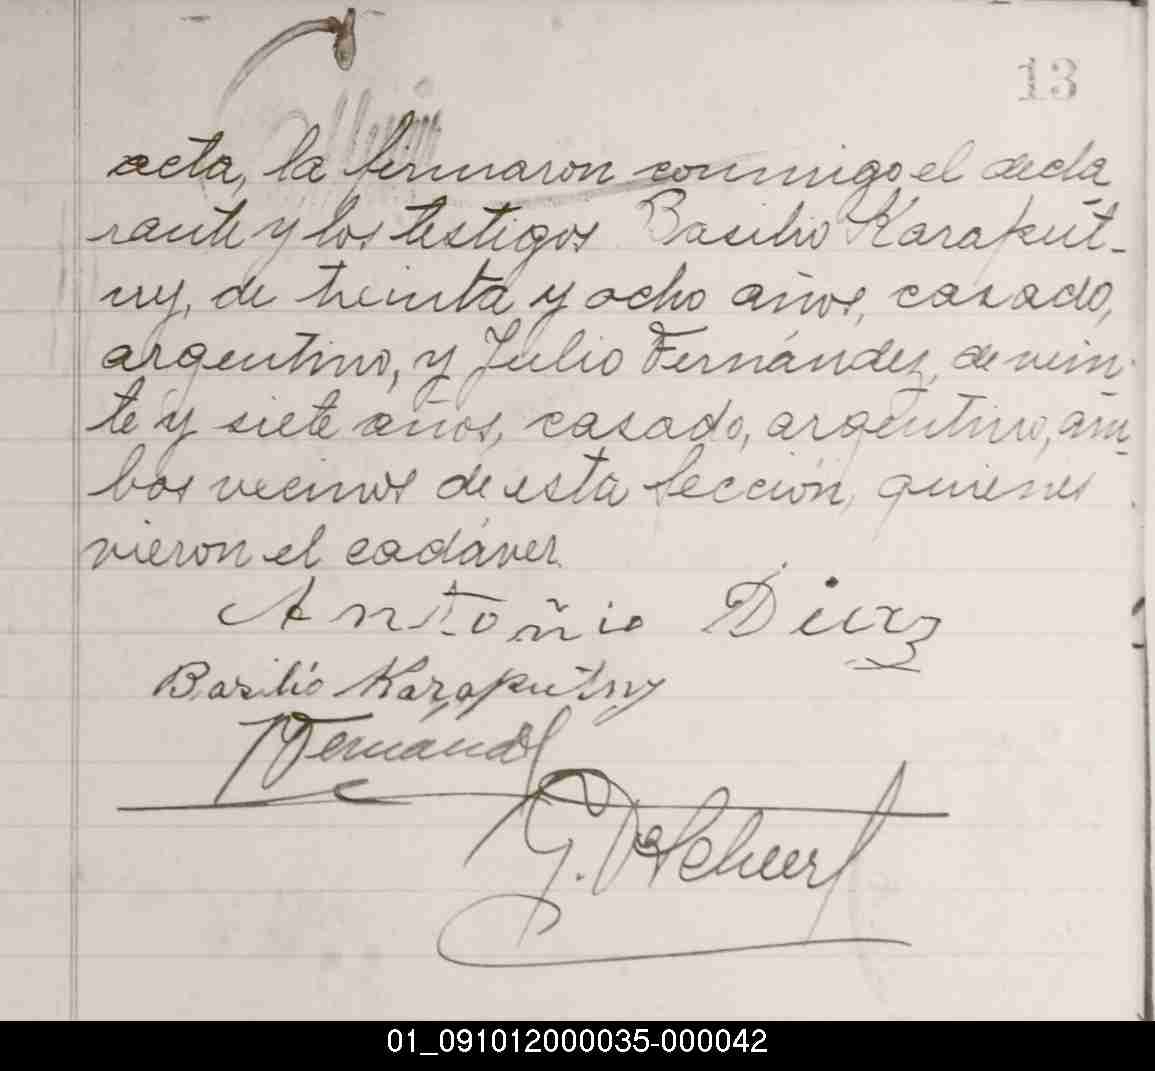 13
acta, la firmaron conmigo el decla
rante y los testigos Basilio Karaput-
ny, de treinta y ocho años, casado,
argentino, y Julio Fernández, de vein-
te y siete años, casado, argentino, am-
bos vecinos de esta Sección, quienes
vieron el cadáver.
Antoñio Diaz
Basilio Karaputny
Fernand
G.
01_091012000035-000042